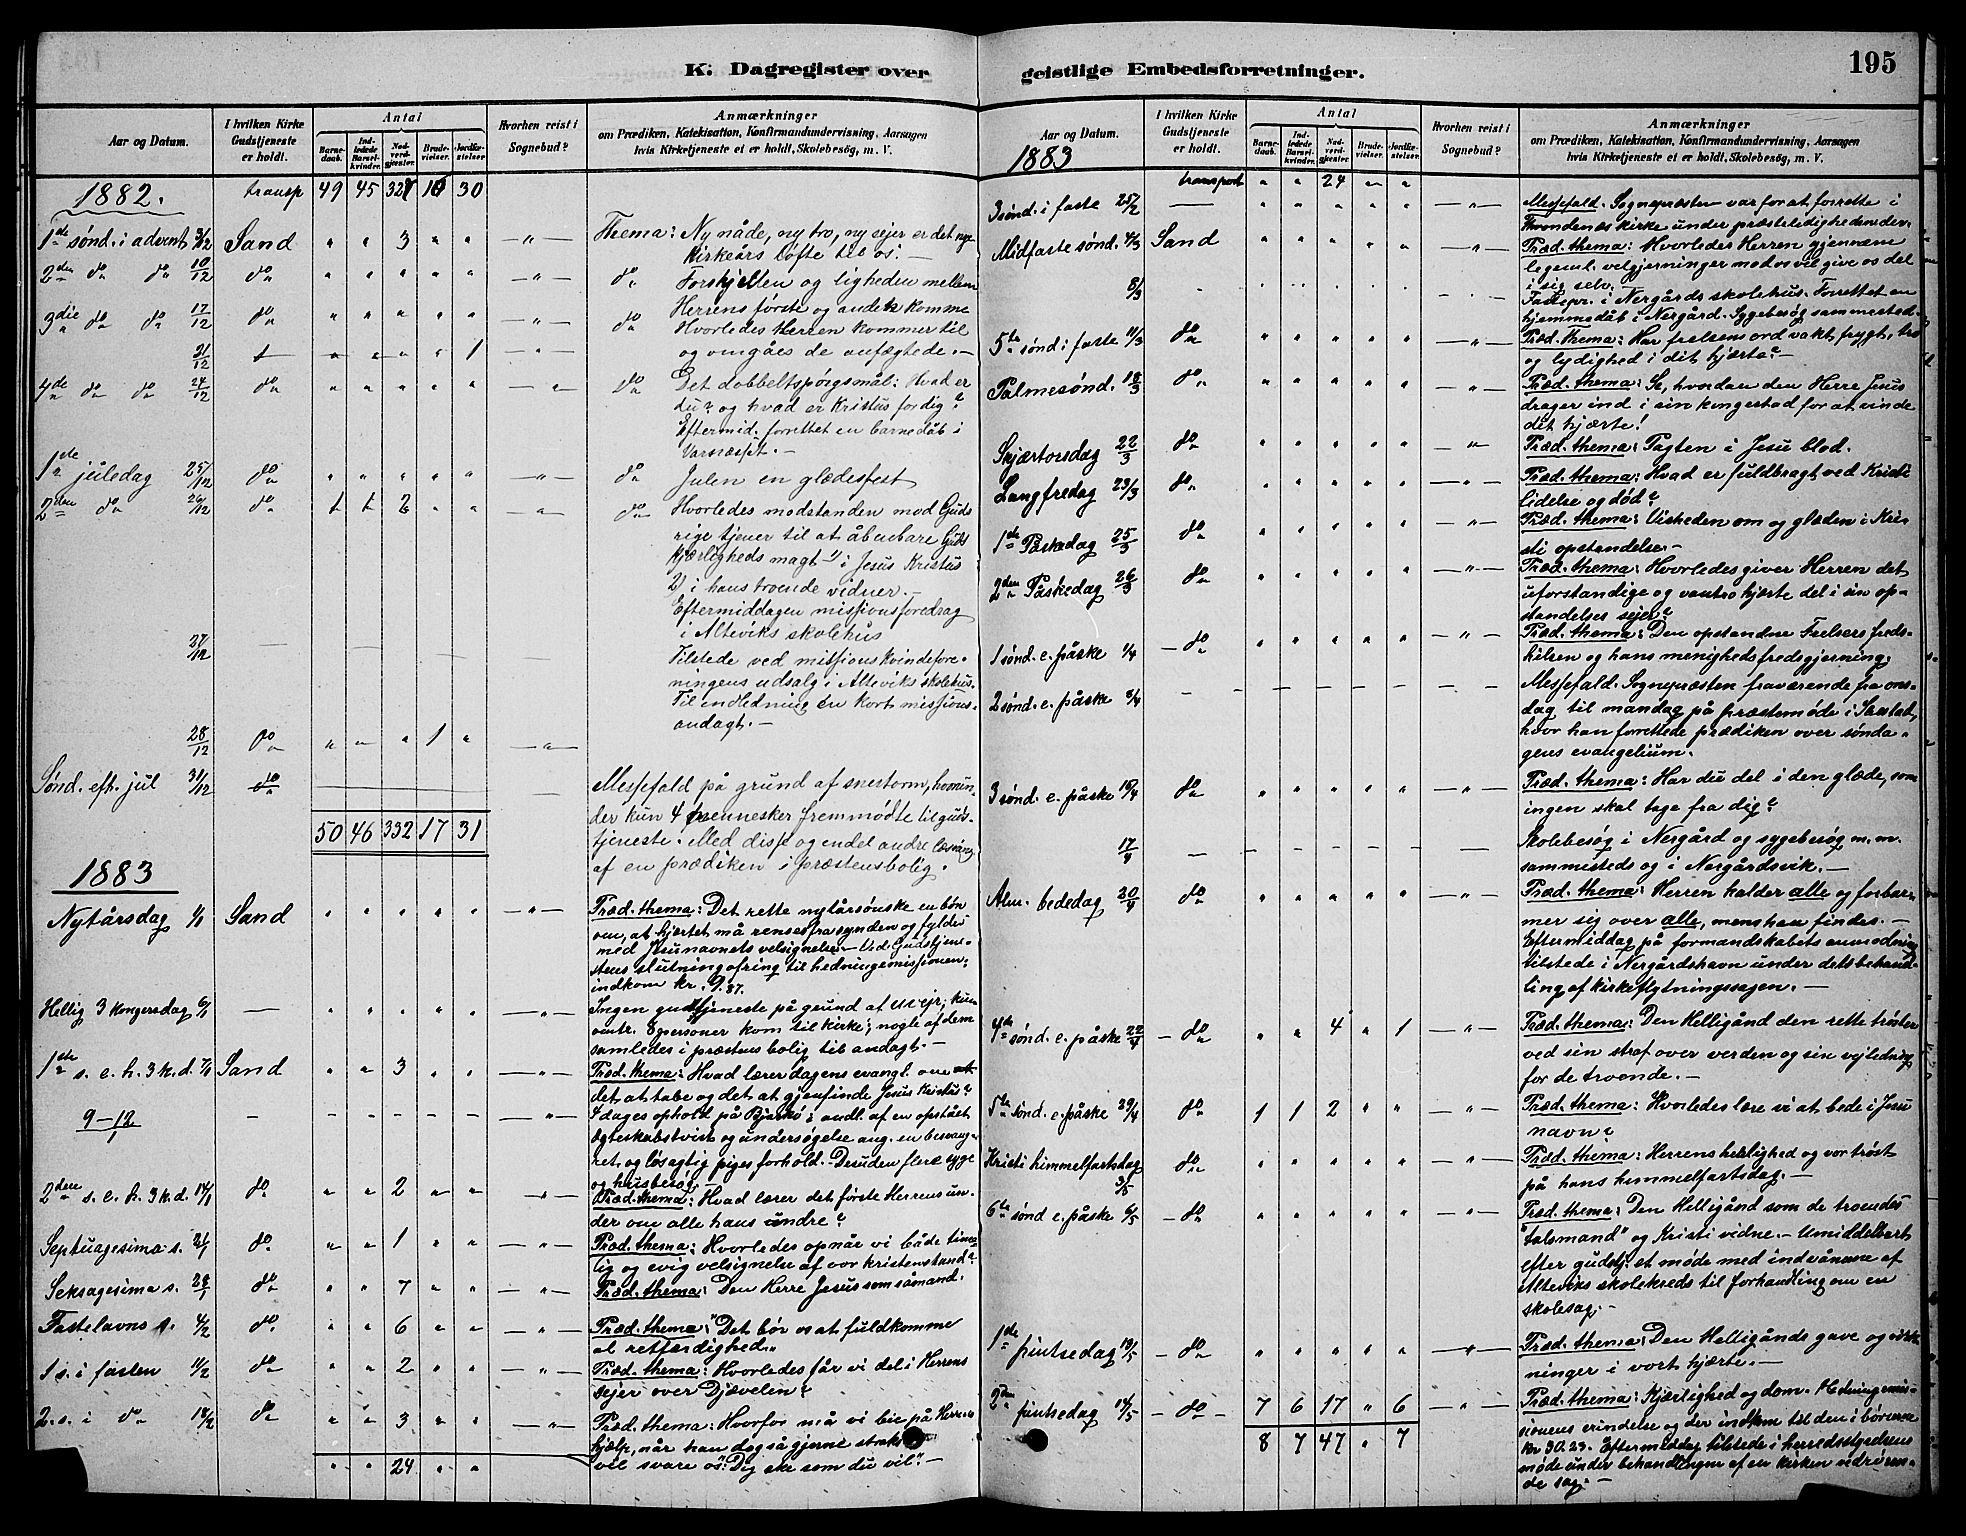 K. Dagregister over
Aar og Datum.
I hvilken Kirke Gudstjeneste er holdt.
Antal
Barnedaab.
Indledede Barselkvinder.
Nadverdgjester.
Brudevielser.
Jordfæstelser.
Hvorhen reist i Sognebud?
Anmærkninger
om Prædiken, Katekisation, Konfirmandundervisning, Aarsagen
hvis Kirketjeneste et er holdt, Skolebesög, m. V.
1882. transp 49 45 30
1ste sønd. i advent 3/12 Sand " " 3 " " —"— Thema: Ny nåde, ny tro, ny sejer er det nye
Kirkeårs løfte til os. —
2den do do 10/12 do " " " " " —"— do Forskjellen og ligheden mellem
Herrens første og andet komme
3die do do 17/12 do " " " " " —"— do Hvorledes Herren kommer til
21/12 " 1 —"— og omgåes de anfægtede. —
4de do do 24/12 do " " " " " —"— do Det dobbeltspørgsmål: Hvad er
du? og hvad er Kristus for dig?
Eftermid. forrettet en barnedåb i
Varnæsset. —
1ste juledag 25/12 do " " " " " —"— do Julen en glædesfest
2den do 26/12 do 1 1 2 " " —"— do Hvorledes modstanden mod Guds
rige tjener til at åbenbare Guds
Kjærligheds magt 1) i Jesus Kristus
2) i hans troende vidner. —
Eftermiddagen missionsforedrag
i Alteviks skolehus
27/12 — Tilstede ved missionskvindefore-
ningens udsalg i Alteviks skolehus.
Til indledning en kort missions-
andagt. —
28/12 do " " " 1 " —"—
Sønd. eft. jul 31/12 do Messefald på grund af snestorm, hvorun-
der kun 4 mennesker fremmødte til guds-
50 46 332 17 31 tjeneste. Med disse og endel andre læsning
af en prædiken i præstens bolig.
1883
Nytårsdag 1/1 Sand " " " " " —"— Præd. thema: Det rette nytårsønske en bøn
om, at hjertet må renses fra synden og fyldes
med Jesu navnets velsignelse. — Ved Gudstjene-
stens slutning ofring til hedningemissionen;
indkom kr. 9.87.
Hellig 3 kongersdag 6/1 — " " " " " —"— Ingen gudstjeneste på grund af uvejr; kun
omtr. 8 personer kom til kirke; nogle af dem
samledes i præstens bolig til andagt. —
1ste s. e. h. 3 k. d. 7/1 Sand " " 3 " " —"— Præd. thema: Hvad lærer dagens evangl. om
det at tabe og det at gjenfinde Jesus Kristus?
9–12/1 — 4 dages ophold på Bjarkø i andl. af en opstået
ægteskabstvist og undersøgelse ang. en besvang-
ret og løsagtig piges forhold. Desuden flere syge
og husbesøg. —
2den s. e. h. 3 k. d. 14/1 do " " 2 " " —"— Præd. thema: Hvad lærer det første Herrens un-
der om alle hans undre?
Septuagesima s. 21/1 do " " 1 " " —"— Præd. thema: Hvorledes opnår vi både time-
lig og evig velsignelse af vor kristenstand?
Seksagesima s. 28/1 do " " 7 " " —"— Præd. thema: Den Herre Jesus som såmand.
Fastelavns s. 4/2 do " " 6 " " —"— Præd. thema: "Det bør os at fuldkomme
al retfærdighed."
1 s. i fasten 11/2 do " " 2 " " —"— Præd. thema: Hvorledes får vi del i Herrens
sejer over Djævelen?
2. s. i do 18/2 do " " 3 " " —"— Præd. thema: Hvorfor må vi bie på Herrens
hjælp, når han dog så gjerne straks
" " 24 " " vil svare os: "Dig ske som du vil". —
geistlige Embedsforretninger.
195
Aar og Datum.
1883
I hvilken Kirke Gudstjeneste er holdt.
Antal
Barnedaab.
Indledede Barselkvinder.
Nadverdgjester.
Brudevielser.
Jordfæstelser.
Hvorhen reist i Sognebud?
Anmærkninger
om Prædiken, Katekisation, Konfirmandundervisning, Aarsagen
hvis Kirketjeneste et er holdt, Skolebesög, m. V.
transport " " 24 " "
3 sønd. i faste 25/2 — —"— Messefald. Sognepræsten var for at forrette i
Trondenes kirke under præsteledigheden der.
Midfaste sønd. 4/3 Sand " " " " " —"— Præd. thema: Hvorledes Herren gjennem
legeml. velgjerninger mod os vil give os del
i sig selv.
8/3 Fastepr. i Nergårds skolehus. Forrettet en
hjemmedåb i Nergård. Sygebesøg sammested.
5te sønd i faste 11/3 do " " " " " —"— Præd. Thema: Har frelsens ord vakt frygt, tro
og lydighed i dit hjerte? —
Palmesønd. 18/3 do " " " " " —"— Præd. thema: Se, hvordan den Herre Jesus
drager ind i sin kongestad for at vinde
dit hjerte!
Skjærtorsdag 22/3 do " " " " " —"— Præd. thema: Pagten i Jesu blod.
Langfredag 23/3 do " " " " " —"— Præd. thema: Hvad er fuldbragt ved Kristi
lidelse og død?
1ste Påskedag 25/3 do " " " " " —"— Præd. thema: Visheden om og glæden i Kri-
sti opstandelse. —
2den Påskedag 26/3 do " " " " " —"— Præd. thema: Hvorledes giver Herren det
uforstandige og vantro hjerte del i sin op-
standelses sejer?
1 sønd. e. påske 1/4 – do " " " " " —"— Præd. thema: Den opstandne Frelsers freds-
hilsen og hans menigheds fredsgjerning.
2 sønd. e. påske 8/4 – – – – – – – Messefald. Sognepræsten fraværende fra ons-
dag til mandag på præstemøde i
hvor han forrettede prædiken over sønda-
gens evangelium.
3 sønd. e. påske 15/4 do " " " " " —"— Præd. thema: Har du del i den glæde, som
ingen skal tage fra dig?
17/4 – – – – – – — Skolebesøg i Nergård og sygebesøg m. m.
sammesteds og i Nergårdsvik. —
Alm. bededag 20/4 do " " " " " —"— Præd. thema: Herren kalder alle og forbar-
mer sig over alle, mens han findes. —
Eftermiddag på formandskabets anmodning
tilstede i Nergårdshavn under dets behand-
ling af kirkeflytningssagen. —
4de sønd. e. påske 22/4 – do " " 4 " 1 —"— Præd. thema: Den Helligånd den rette trøster
ved sin straf over verden og sin vejledning
for de troende. —
5te sønd. e. påske 29/4 do 1 1 2 " " —"— Præd. thema: Hvorledes lære vi at bede i Jesu
navn?
Kristi himmelfartsdag 3/5 do " " " " " —"— Præd. thema: Herrens herlighed og vor trøst
på hans himmelfartsdag. —
6te sønd e. påske 6/5 – do " " " " " —"— Præd. thema: Den Helligånd som de troendes
"talsmand" og Kristi vidne. — Umiddelbart
efter gudstj. et møde med indvånerne af
Alteviks skolekreds til forhandling om en
skolesag. —
1ste pintsedag 13/5 – do " " " " " —"— Præd. thema: Den Helligånds gave og virk-
ninger i vort hjerte. —
2den pintsedag 14/5 – do – 7 6 17 " 6 —"— Præd. thema: Kjærlighed og dom. Hedningemis-
sionens erindelse og der indkom til den i bøsserne
8 7 47 " 7 Kr 30.23. Eftermiddag tilstede i herredsstyrelsens
møde under behandlingen af en kirken vedrøren-
de sag. —